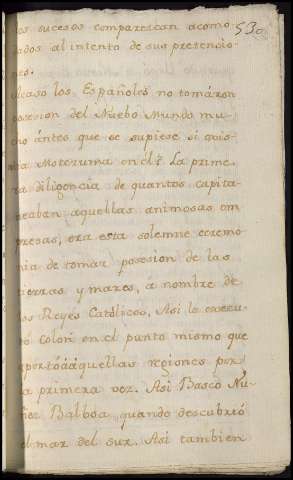 los sucesos comparezcan acomo- 530
dados al intento de sus pretencio-
nes.
Acaso los Españoles no tomáron
posesion del Nuebo Mundo mu-
cho ántes que se supiese si exis-
tia Motezuma en el? La prime-
ra diligencia de quantos capita-
neaban aquellas animosas em-
presas, era esta solemne ceremo-
nia de tomar posesion de las
tierras y mares, á nombre de
los Reyes Católicos. Asi lo execu-
tó Colon en el punto mismo que
aportó á aquellas regiones por
la primera vez. Asi Basco Nu-
ñez Balboa quando descubrió
el mar del sur. Asi tambien